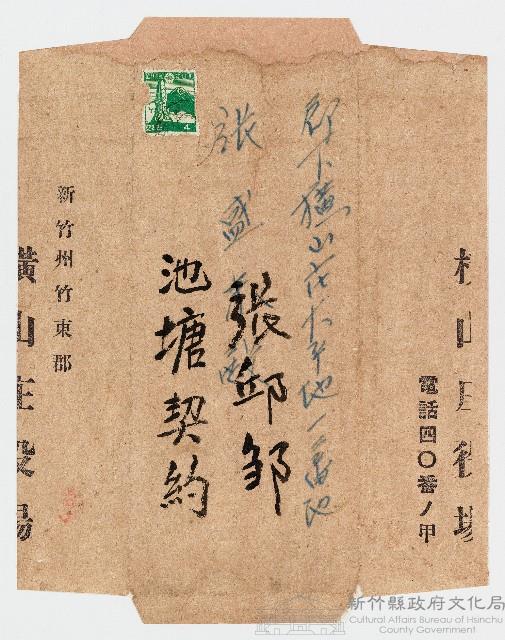 橫山庄役場
電話四〇番ノ甲
郡下橫山庄大平地一番地
張盛
張邱鄒
池塘契約
4
新竹州竹東郡
橫山庄役場
新竹縣政府文化局
Cultural Affairs Bureau of Hsinchu
County Government